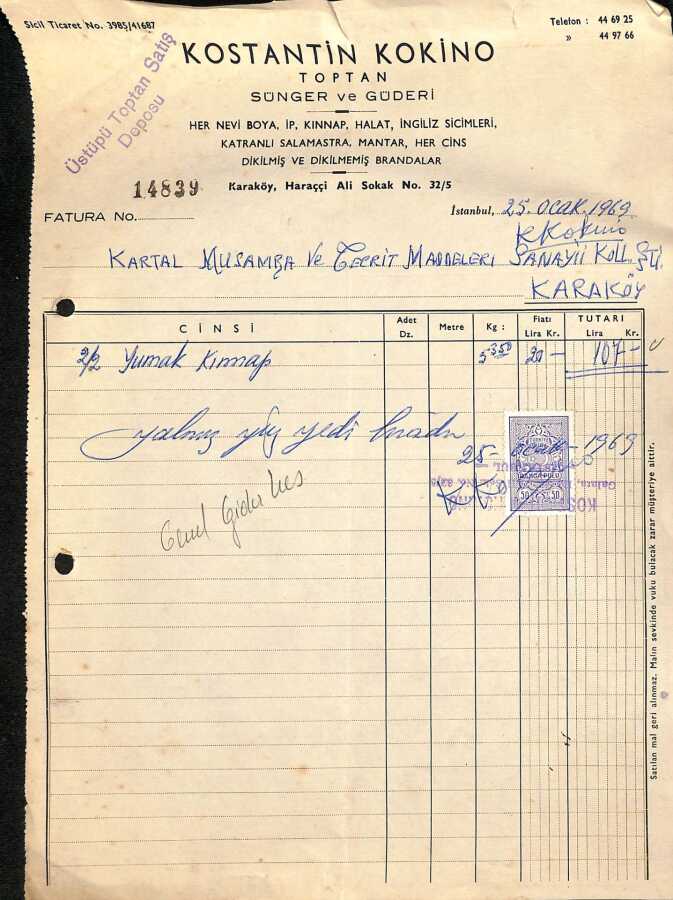 Sicil Ticaret No. 3985/41687
Telefon : 44 69 25
» 44 97 66
Üstüpü Toptan Satış
Deposu
KOSTANTİN KOKİNO
TOPTAN
SÜNGER ve GÜDERİ
HER NEVİ BOYA, İP, KINNAP, HALAT, İNGİLİZ SİCİMLERİ,
KATRANLI SALAMASTRA, MANTAR, HER CİNS
DİKİLMİŞ VE DİKİLMEMİŞ BRANDALAR
Karaköy, Haraççi Ali Sokak No. 32/5
14839
FATURA No.
İstanbul, 25. OCAK. 1969
K Kokino
KARTAL MUŞAMBA Ve TECRİT MADDELERİ SANAYİİ KOLL. ŞTİ.
KARAKÖY
CİNSİ Adet Dz. Metre Kg : Fiatı Lira Kr. TUTARI Lira Kr.
2/2 Yumak Kınnap 5350 20 - 107 -
yalnız yüz yedi liradır
25 - ocak - 1969
TÜRKİYE
DAMGA PULU
50 50
Genel Gider
Satılan mal geri alınmaz. Malın sevkinde vuku bulacak zarar müşteriye aittir.